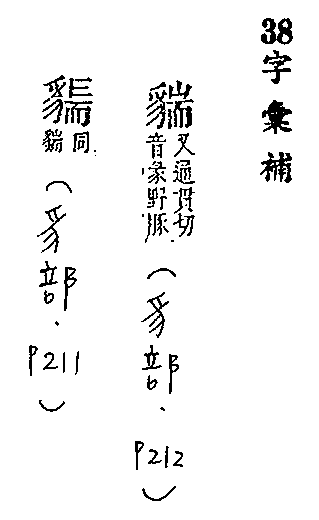 38字彙補
貒
又通貫切
音彖野豚
(豸部.P212)
同
貒
(豸部.P211)